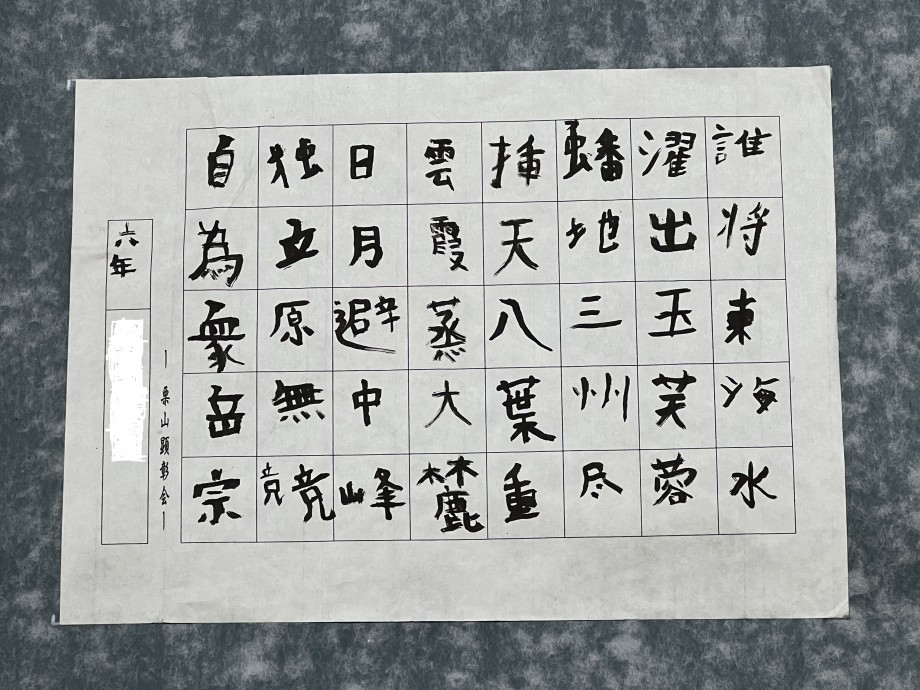 誰将東海水
濯出玉芙蓉
蟠地三州尽
挿天八葉重
雲霞蒸大麓
日月避中峰
独立原無競
自為衆岳宗
―栗山顕彰会―
六年